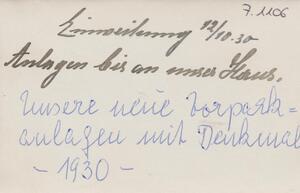 7.1106
Einweihung 12/10.30
Anlagen bis an unser Haus.
Unsere neue Vorpark=
anlagen mit Denkmal
- 1930 -